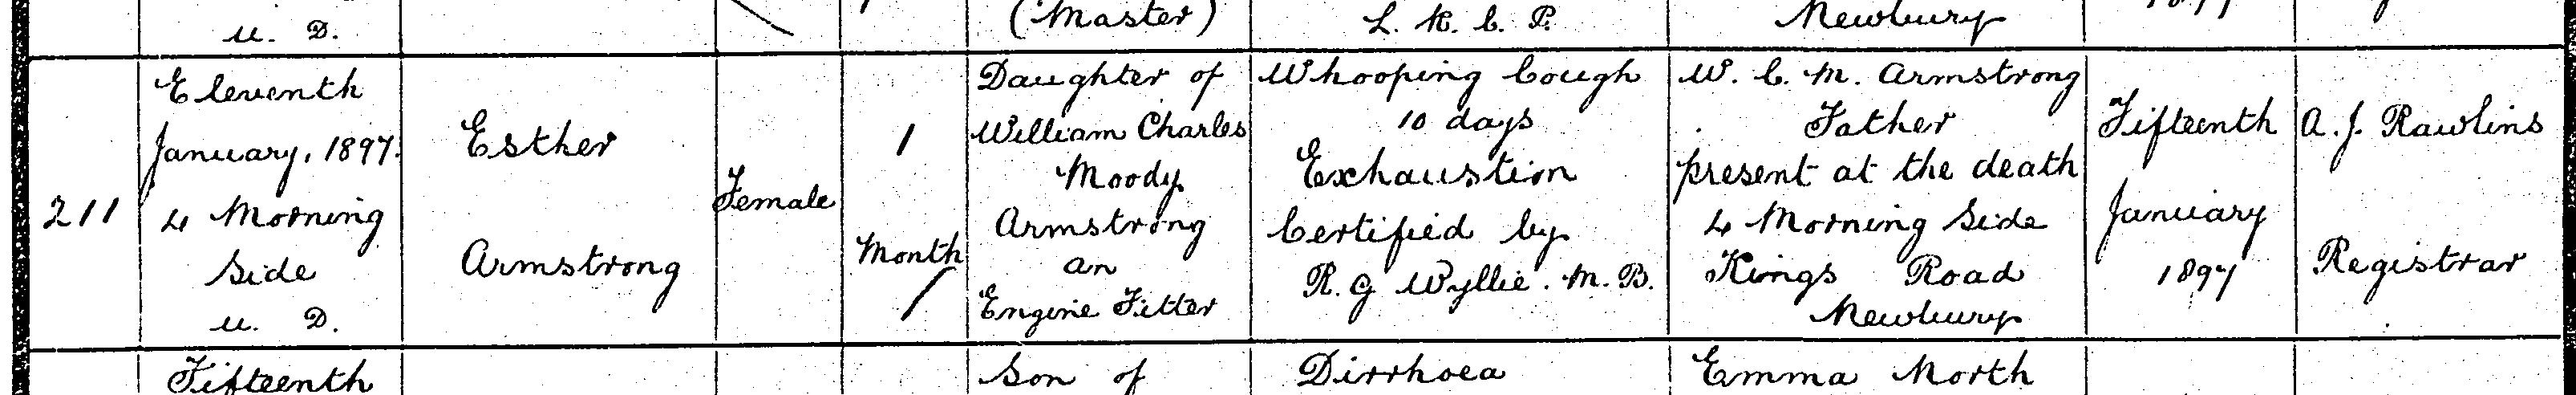 u. D.
(Master)
L. R. C. P.
Newbury
1897
211
Eleventh
January, 1897.
4 Morning
Side
u. D.
Esther
Armstrong
Female
1
Month
Daughter of
William Charles
Moody
Armstrong
an
Engine Fitter
Whooping Cough
10 days
Exhaustion
Certified by
R. G Wyllie. M. B.
W. C. M. Armstrong
Father
present at the death
4 Morning Side
Kings Road
Newbury
Fifteenth
January
1897
A. J. Rawlins
Registrar
Fifteenth
Son of
Dirrhoea
Emma North